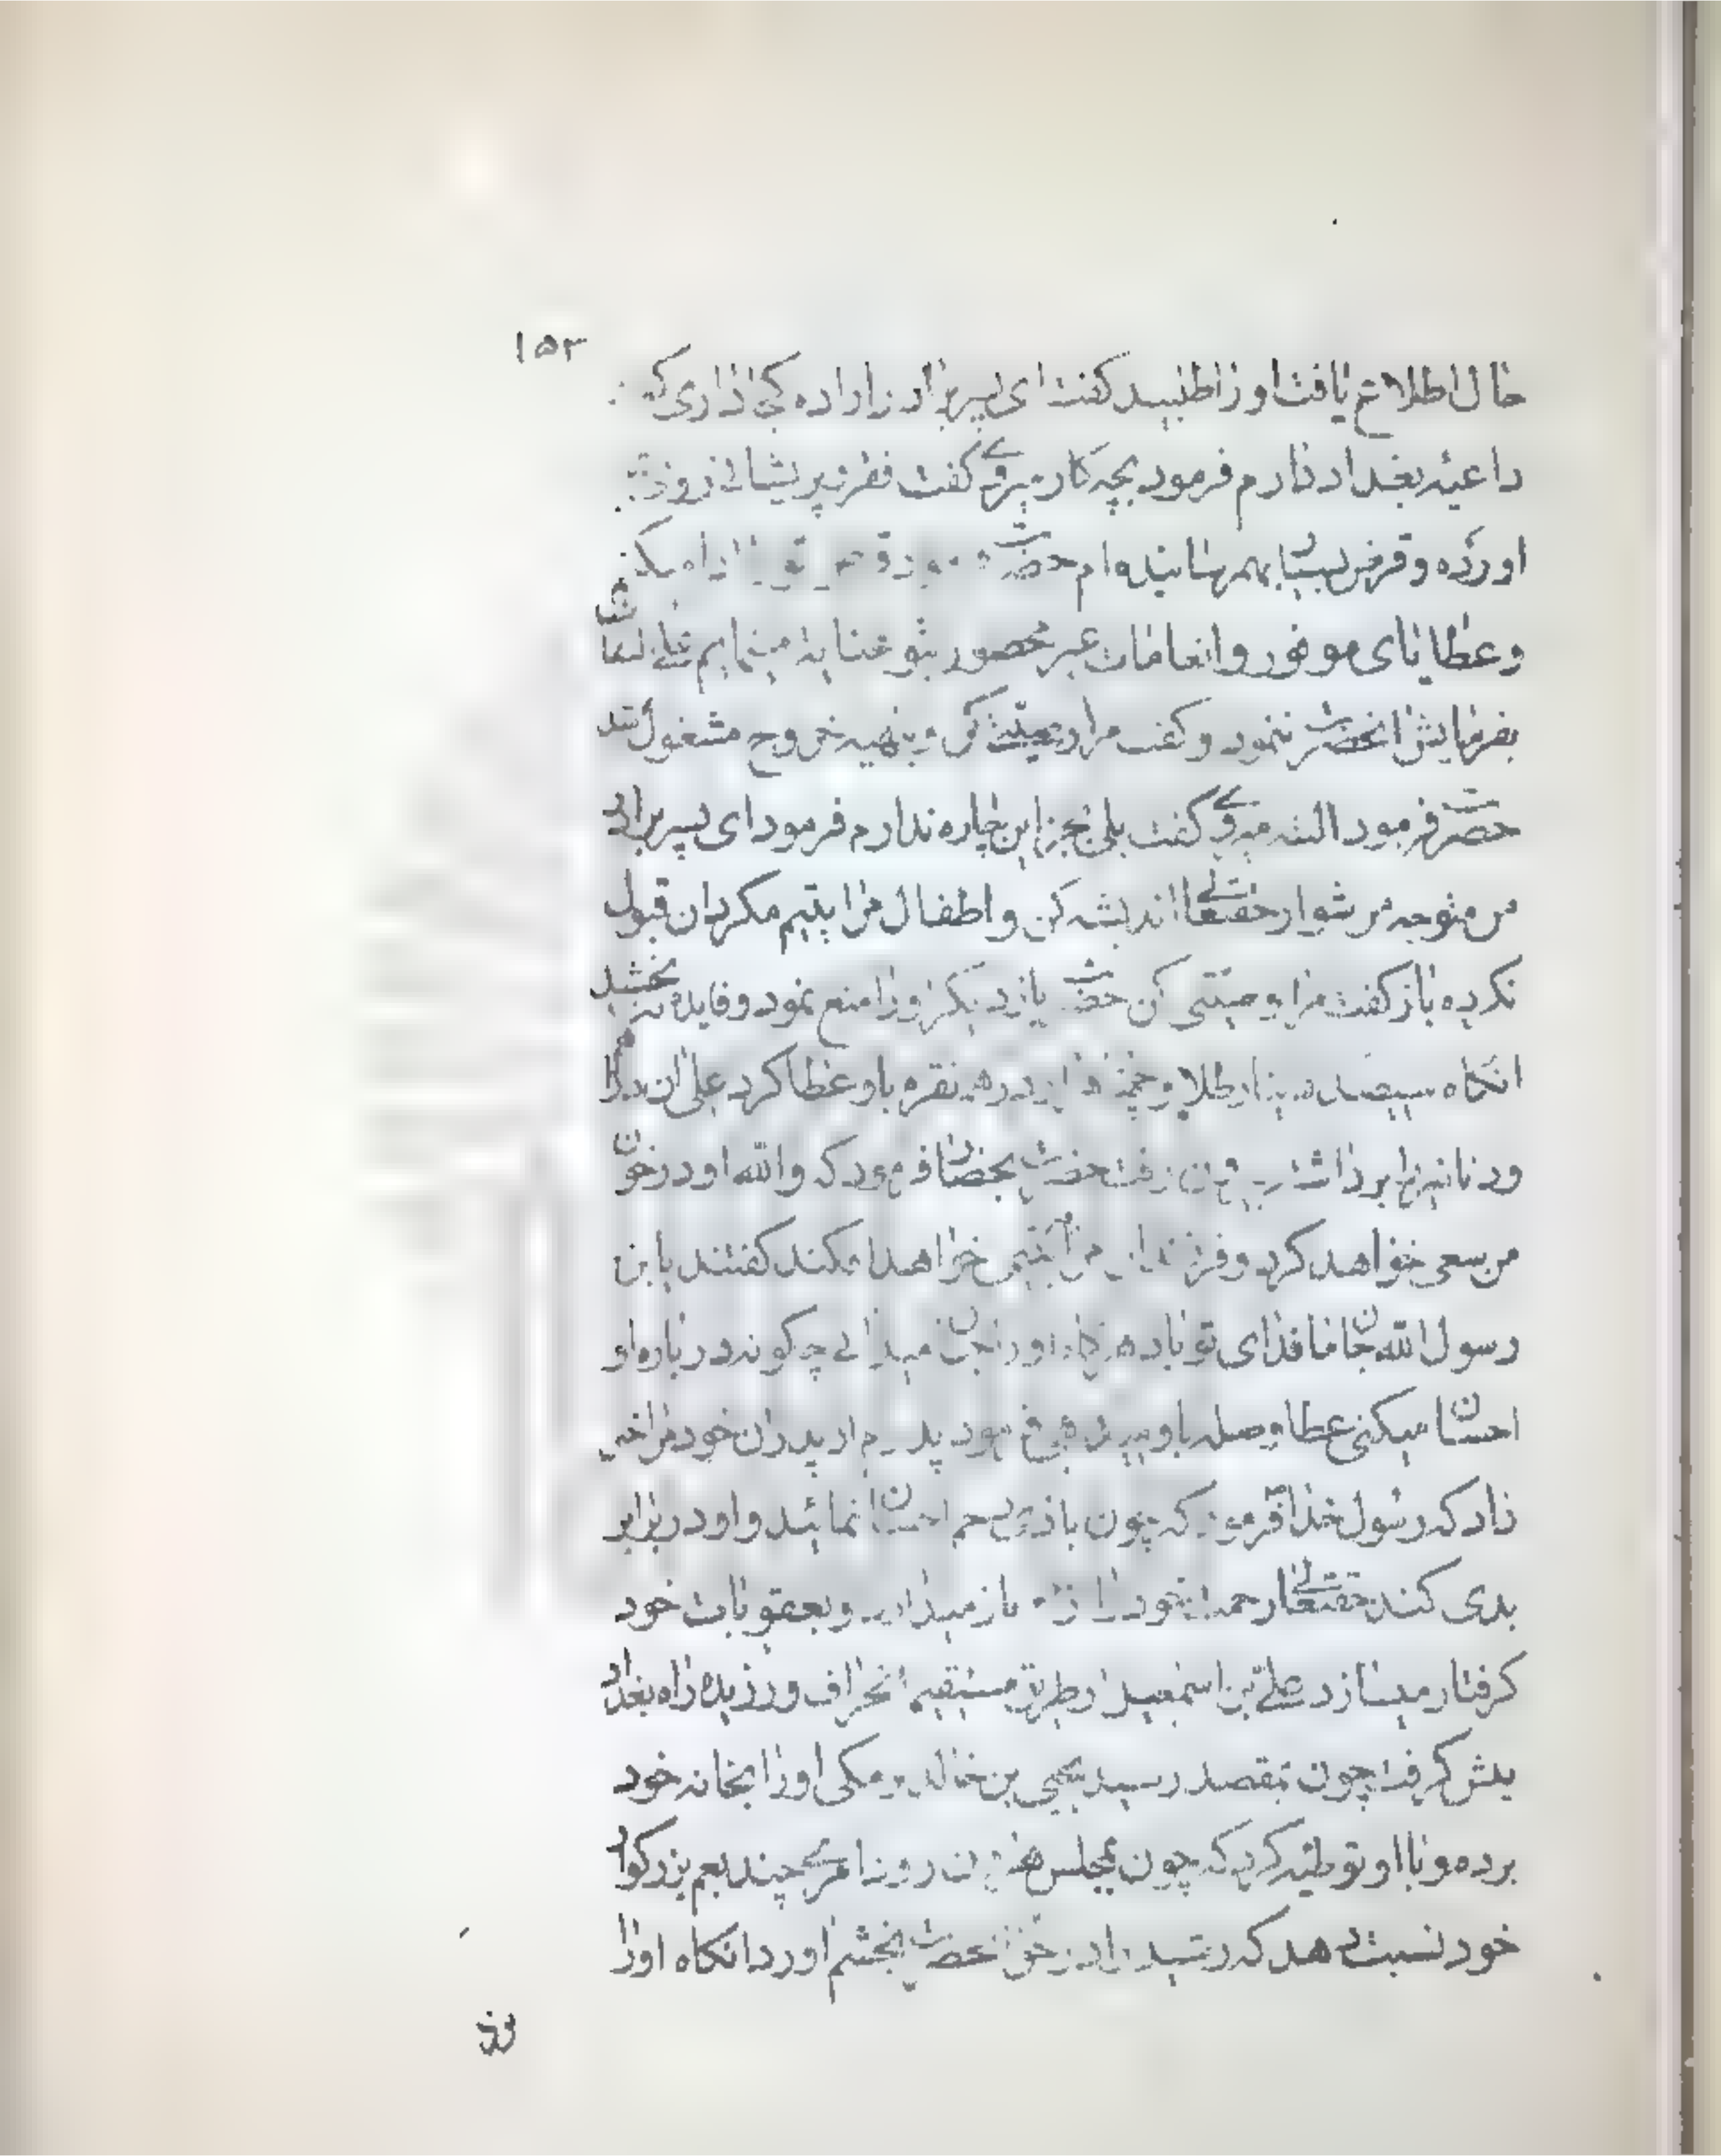 ۱۵۳
حال اطلاع یافت اورا طلبید کفت ای پسر برادر اراده کجا داری کفت
داعیه بغداد دارم فرمود بچه کار میروی کفت فقر و پریشانی رو
اورده و قرض بسیا بهم رسانیده ام حضرت فرمود قرض تو را ادا میکنم
وعطایای موفور و انعامات غیر محصور بتو عنایة مینمایم علی التفات
بفرمایش انحضرت ننمود و کفت مرا وصیتی کن و بتهیه خروج مشغول شد
حضرت فرمود البته میروی کفت بلی بجز این چاره ندارم فرمود ای پسر برادر
من متوجه من شو از حقتعالی اندیشه کن و اطفال مرا یتیم مکردان قبول
نکرده باز کفت مرا وصیتی کن حضرت باز دیکر اورا منع نمود و فایده نبخشید
انکاه سیصد دینار طلا و چهار هزار درهم نقره باو عطا کرد علی ان دراهم
ودنانیر را برداشته بیرون رفت حضرت بحضار فرمود که والله او در خون
من سعی خواهد کرد و فرزندان مرا یتیم خواهد کند کفتند یابن
رسول الله جان ما فدای تو باد هرکاه اورا چنین میدانی چکونه درباره او
احسان میکنی عطا و صله باو میدهی فرمود پدرم از پدران خود مرا خبر
داد که رسول خدا فرمود که چون با ذی رحم احسان نمائید و او در برابر
بدی کند حقتعالی رحمت خود را از او باز میدارد و بعقوبات خود
کرفتار میسازد علی بن اسمعیل از طریق مستقیم انحراف ورزیده راه بغداد
پیش کرفت چون بمقصد رسید یحیی بن خالد برمکی اورا بخانه خود
برده و با او توطئه کرد که چون بمجلس هرون رود امری چند بعم بزرکوار
خود نسبت دهد که رشید را در حق حضرت بخشم اورد انکاه اورا
نزد